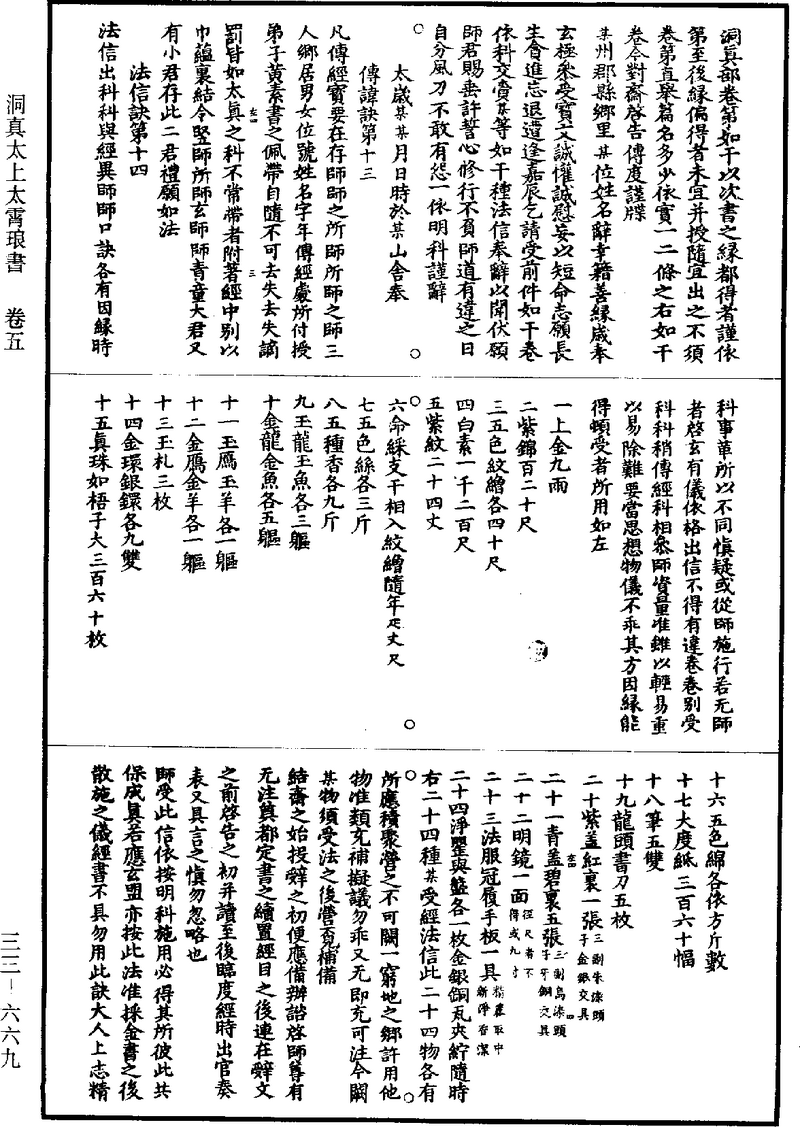 洞真太上太霄琅書　卷五
三三—六六九
洞真部卷第如干以次書之緣都得者謹依
第至後緣偏得者未宜并授隨宜出之不須
卷第直舉篇名多少依實一二條之右如干
卷今對齋啓告傳度謹牒
某州郡縣鄉里某位姓名辭幸藉善緣歲奉
玄極釆受寶文誠懽誠慰妄以短命志願長
生貪進忘退遭逢嘉辰乞請受前件如干卷
依科交賷某等如干種法信奉辭以聞伏願
師君賜垂許誓心修行不負師道有違之日
自分風刀不敢有怨一依明科謹辭
太歲某某月日時於某山舍奉
傳諱訣第十三
凡傳經寶要在存師師之所師所師之師三
人鄉居男女位號姓名字年傳經處所付授
弟子黃素書之佩帶自隨不可去失去失謫
罰皆如太真之科不常帶者附著經中別以
巾蘊裹結令堅師所師玄師師青童大君又
有小君存此二君禮願如法
法信訣第十四
法信出科科與經異師師口訣各有因緣時
科事華所以不同慎疑或從師施行若无師
者啓玄有儀依格出信不得有違卷卷別受
科科稍傳經科相參師資量准雖以輕易重
以易除難要當思想物儀不乖其方因緣能
得頓受者所用如左
一上金九兩
二紫錦百二十尺
三五色紋繒各四十尺
四白素一千二百尺
五紫紋二十四丈
六命綵支干相入紋繒隨年疋丈尺
七五色絲各三斤
八五種香各九斤
九玉龍玉魚各三軀
十金龍金魚各五軀
十一玉鴈玉羊各一軀
十二金鴈金羊各一軀
十三玉札三枚
十四金環銀鐶各九雙
十五真珠如梧子大三百六十枚
十六五色綿各依方斤數
十七大度紙三百六十幅
十八筆五雙
十九龍頭書刀五枚
二十紫蓋紅裏一張三副朱漆頭子金銀交具
二十一青蓋碧裏五張三副烏漆頭子牙銅交具
二十二明鏡一面徑尺者不得或九寸
二十三法服冠履手板一具精麄取中新淨香潔
二十四淨甖與盤各一枚金銀銅瓦夾紵隨時
右二十四種某受經法信此二十四物各有
所應積聚營之不可闕一窮地之鄉許用他
物准類充補擬議勿乖又无即充可注今闕
某物須受法之後營覓補備
結齋之始投辭之初便應備辦諮啓師尊有
无注莫都定書之續置經目之後連在辭文
之前啓告之初并讀至後臨度經時出官奏
表又具言之慎勿忽略也
師受此信依按明科施用必得其所彼此共
保成真若應玄盟亦按此法准採金書之後
散施之儀經書不具勿用此訣大人上志精